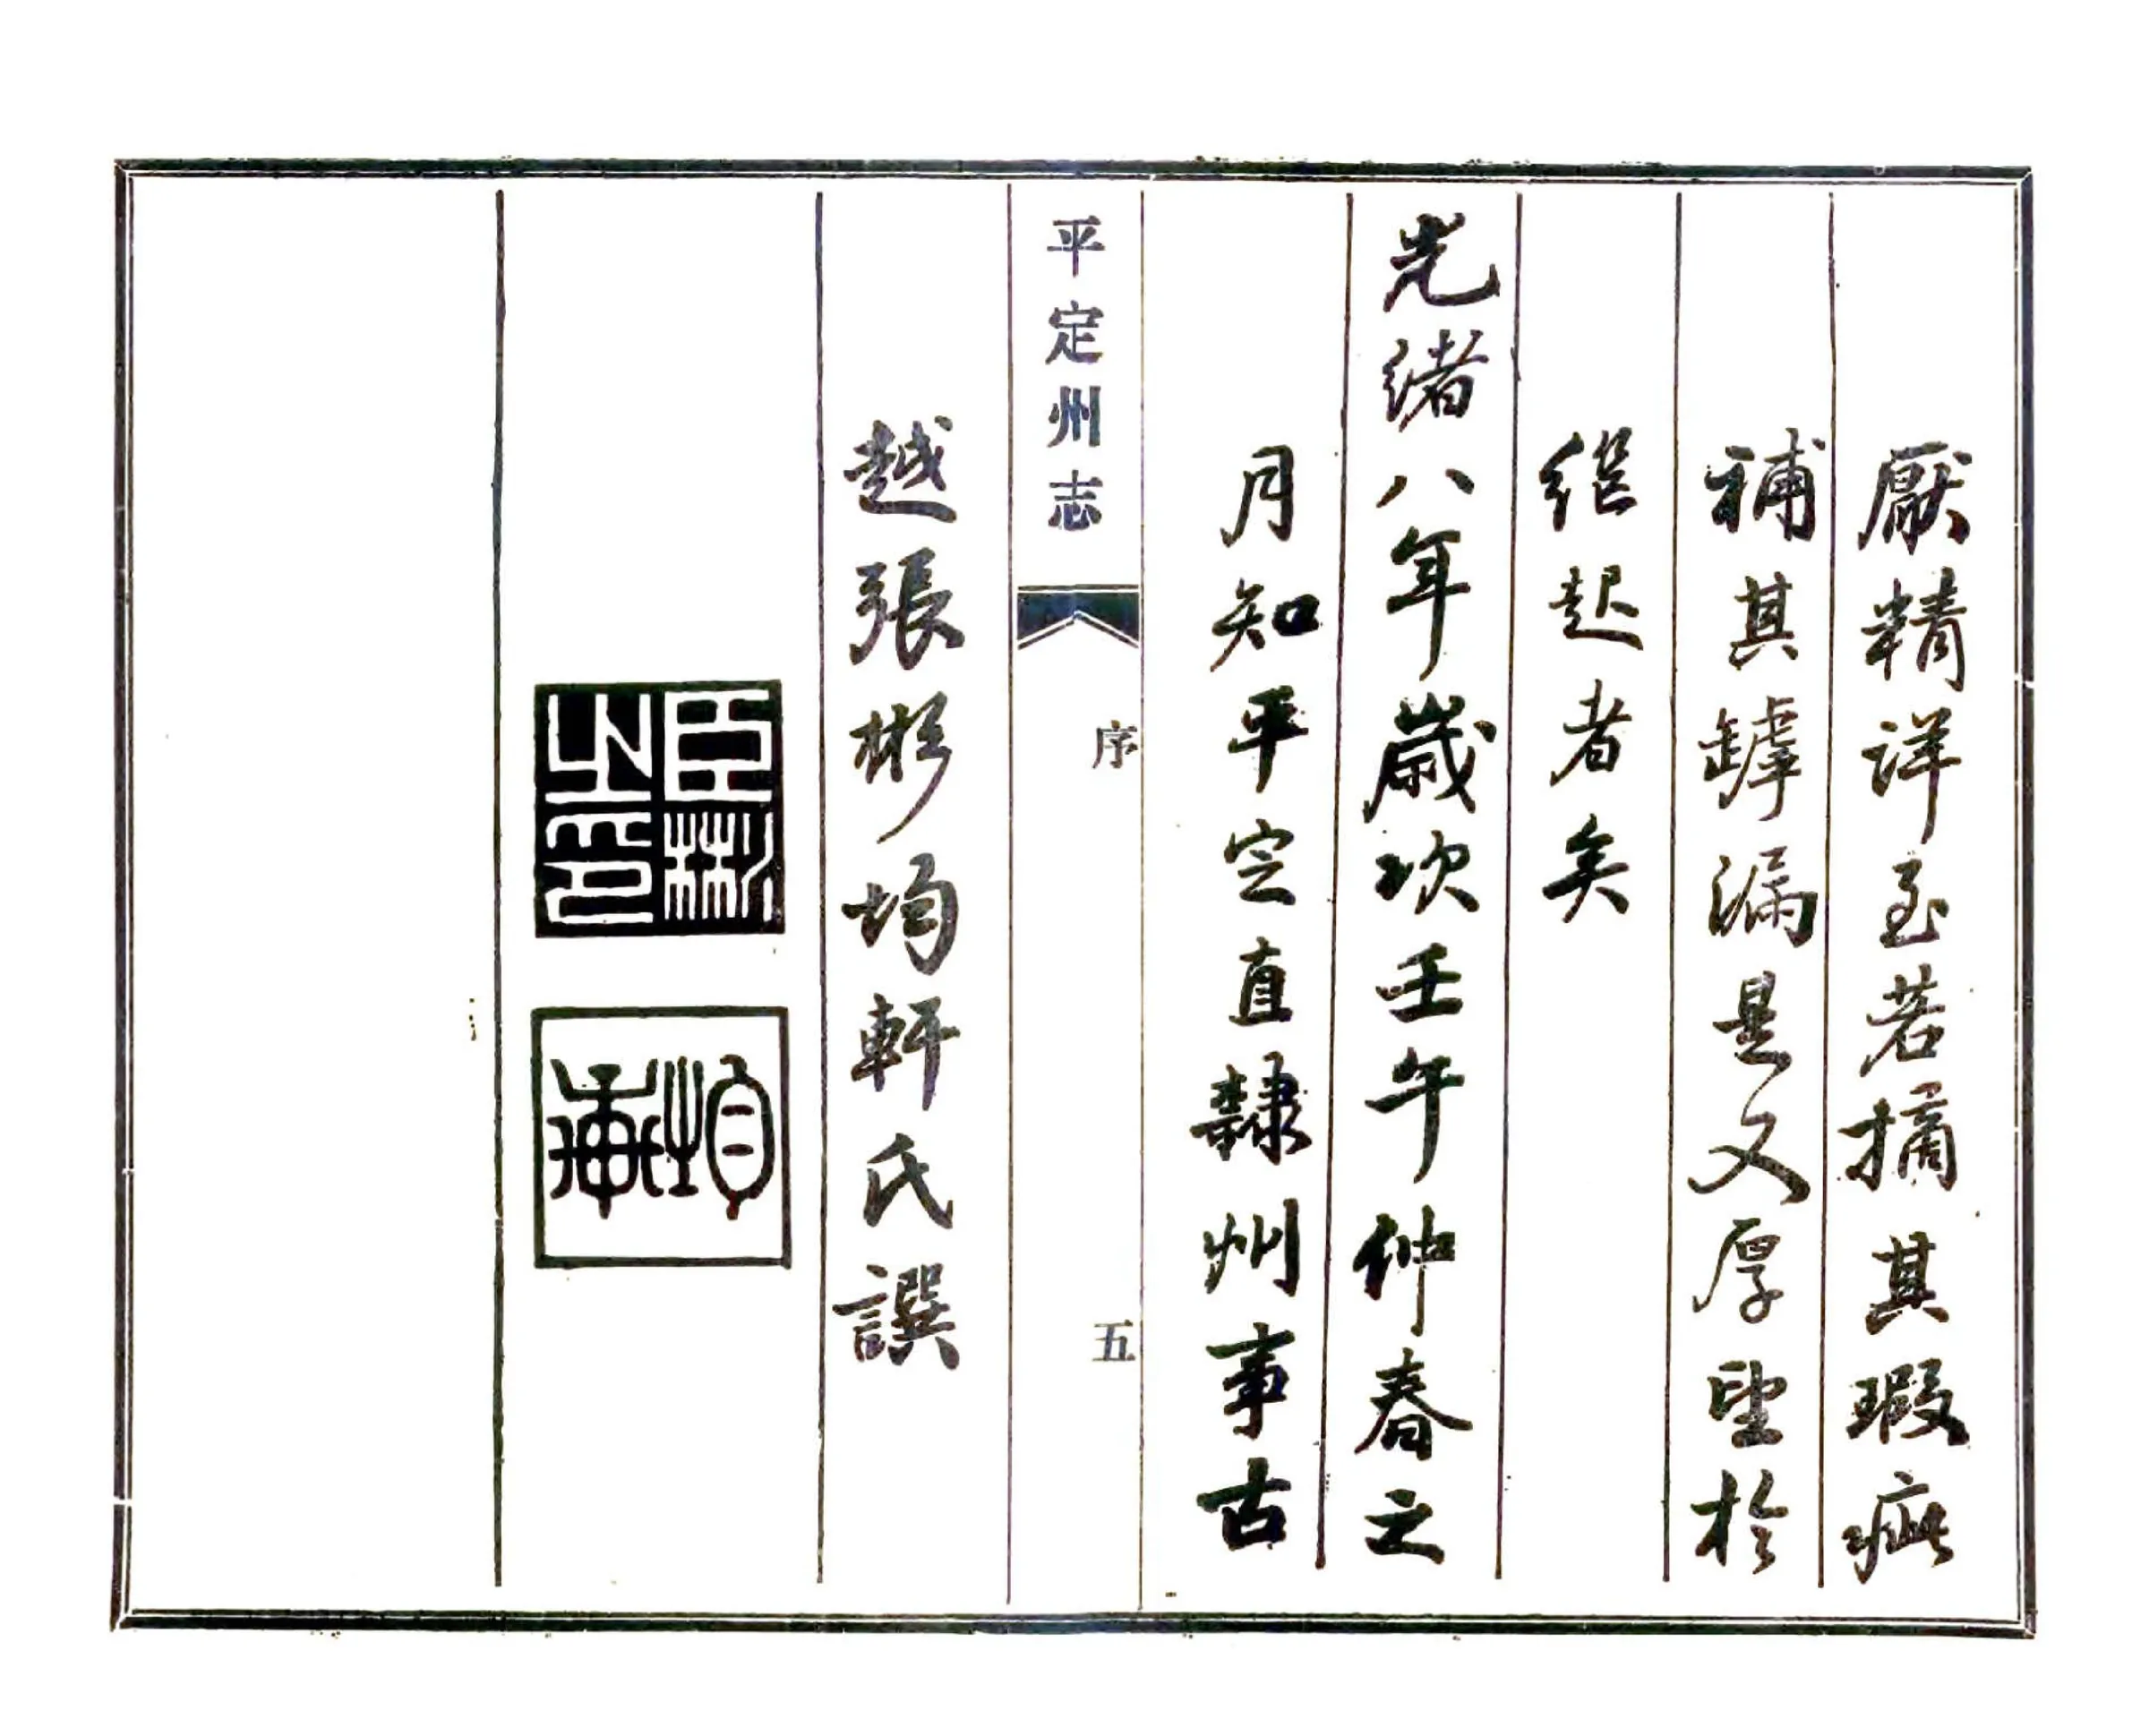 厭精詳至若摘其瑕疵
補其罅漏是又厚望於
继起者矣
光緒八年歲次壬午仲春之
月知平定直隸州事古
平定州志 序 五
越張彬均軒氏譔
臣彬之印